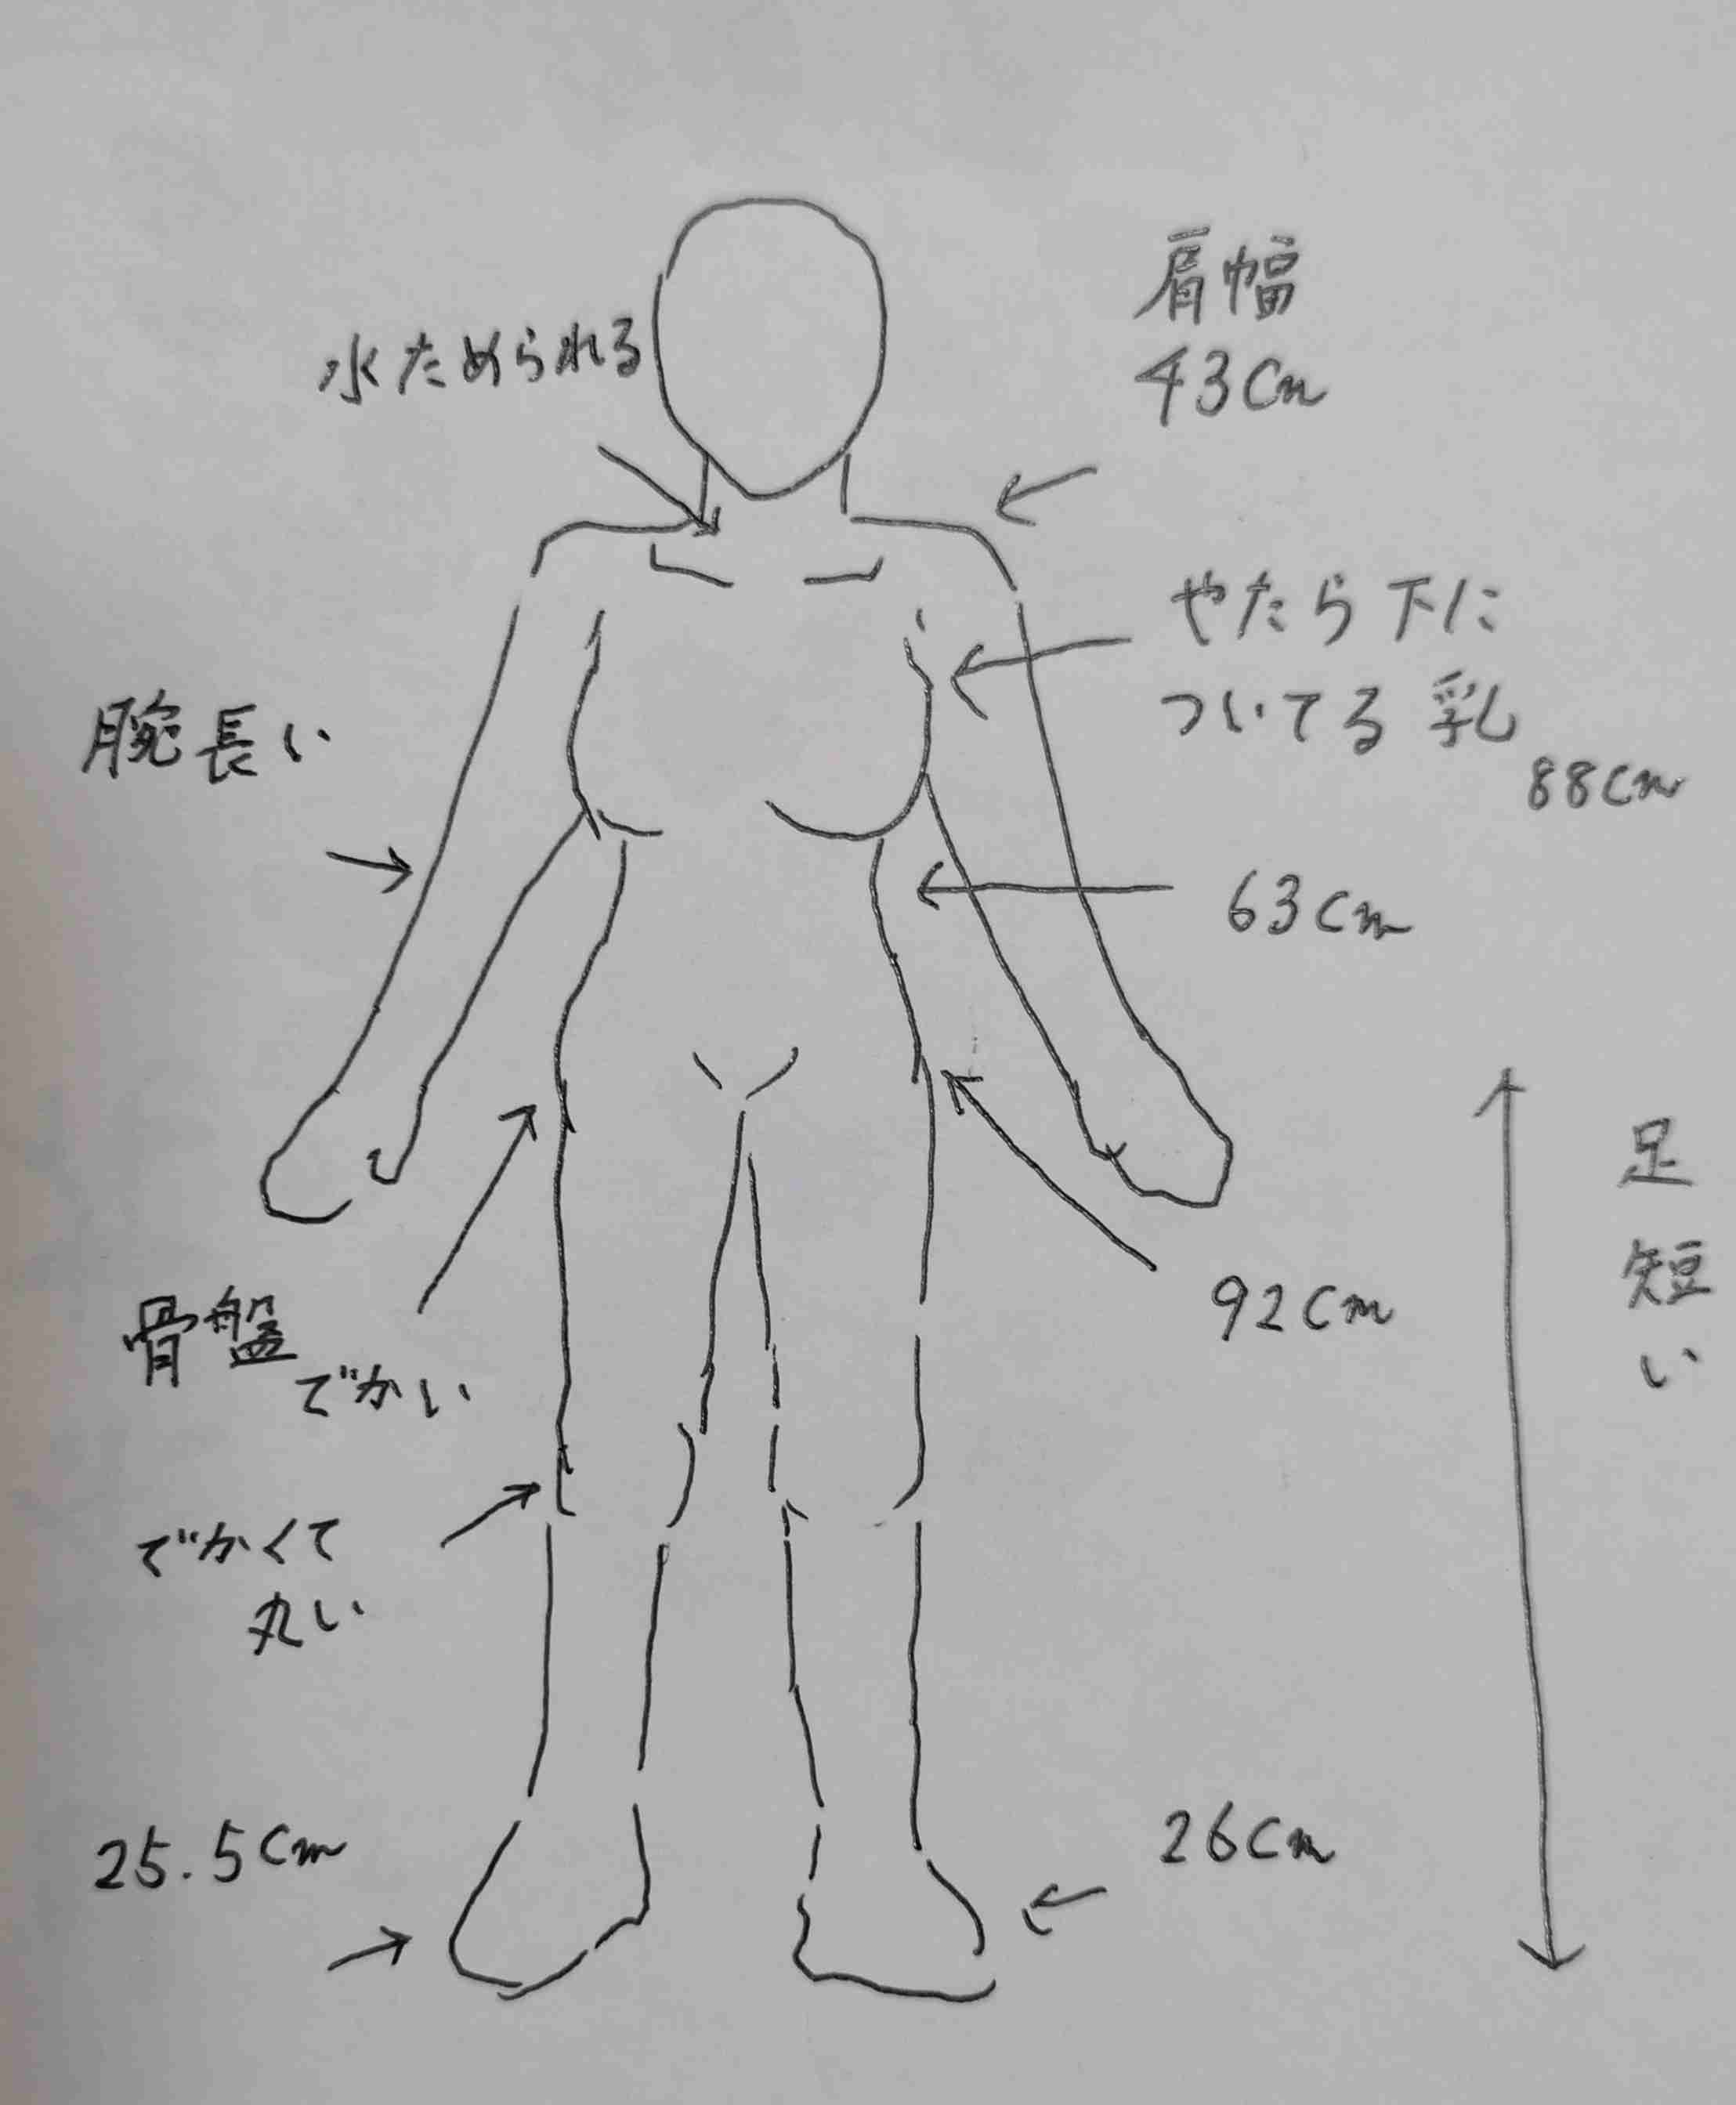 水ためられる
肩幅
43cm
やたら下に
ついてる乳
88cm
腕長い
63cm
骨盤
でかい
92cm
足短い
でかくて
丸い
25.5cm
26cm